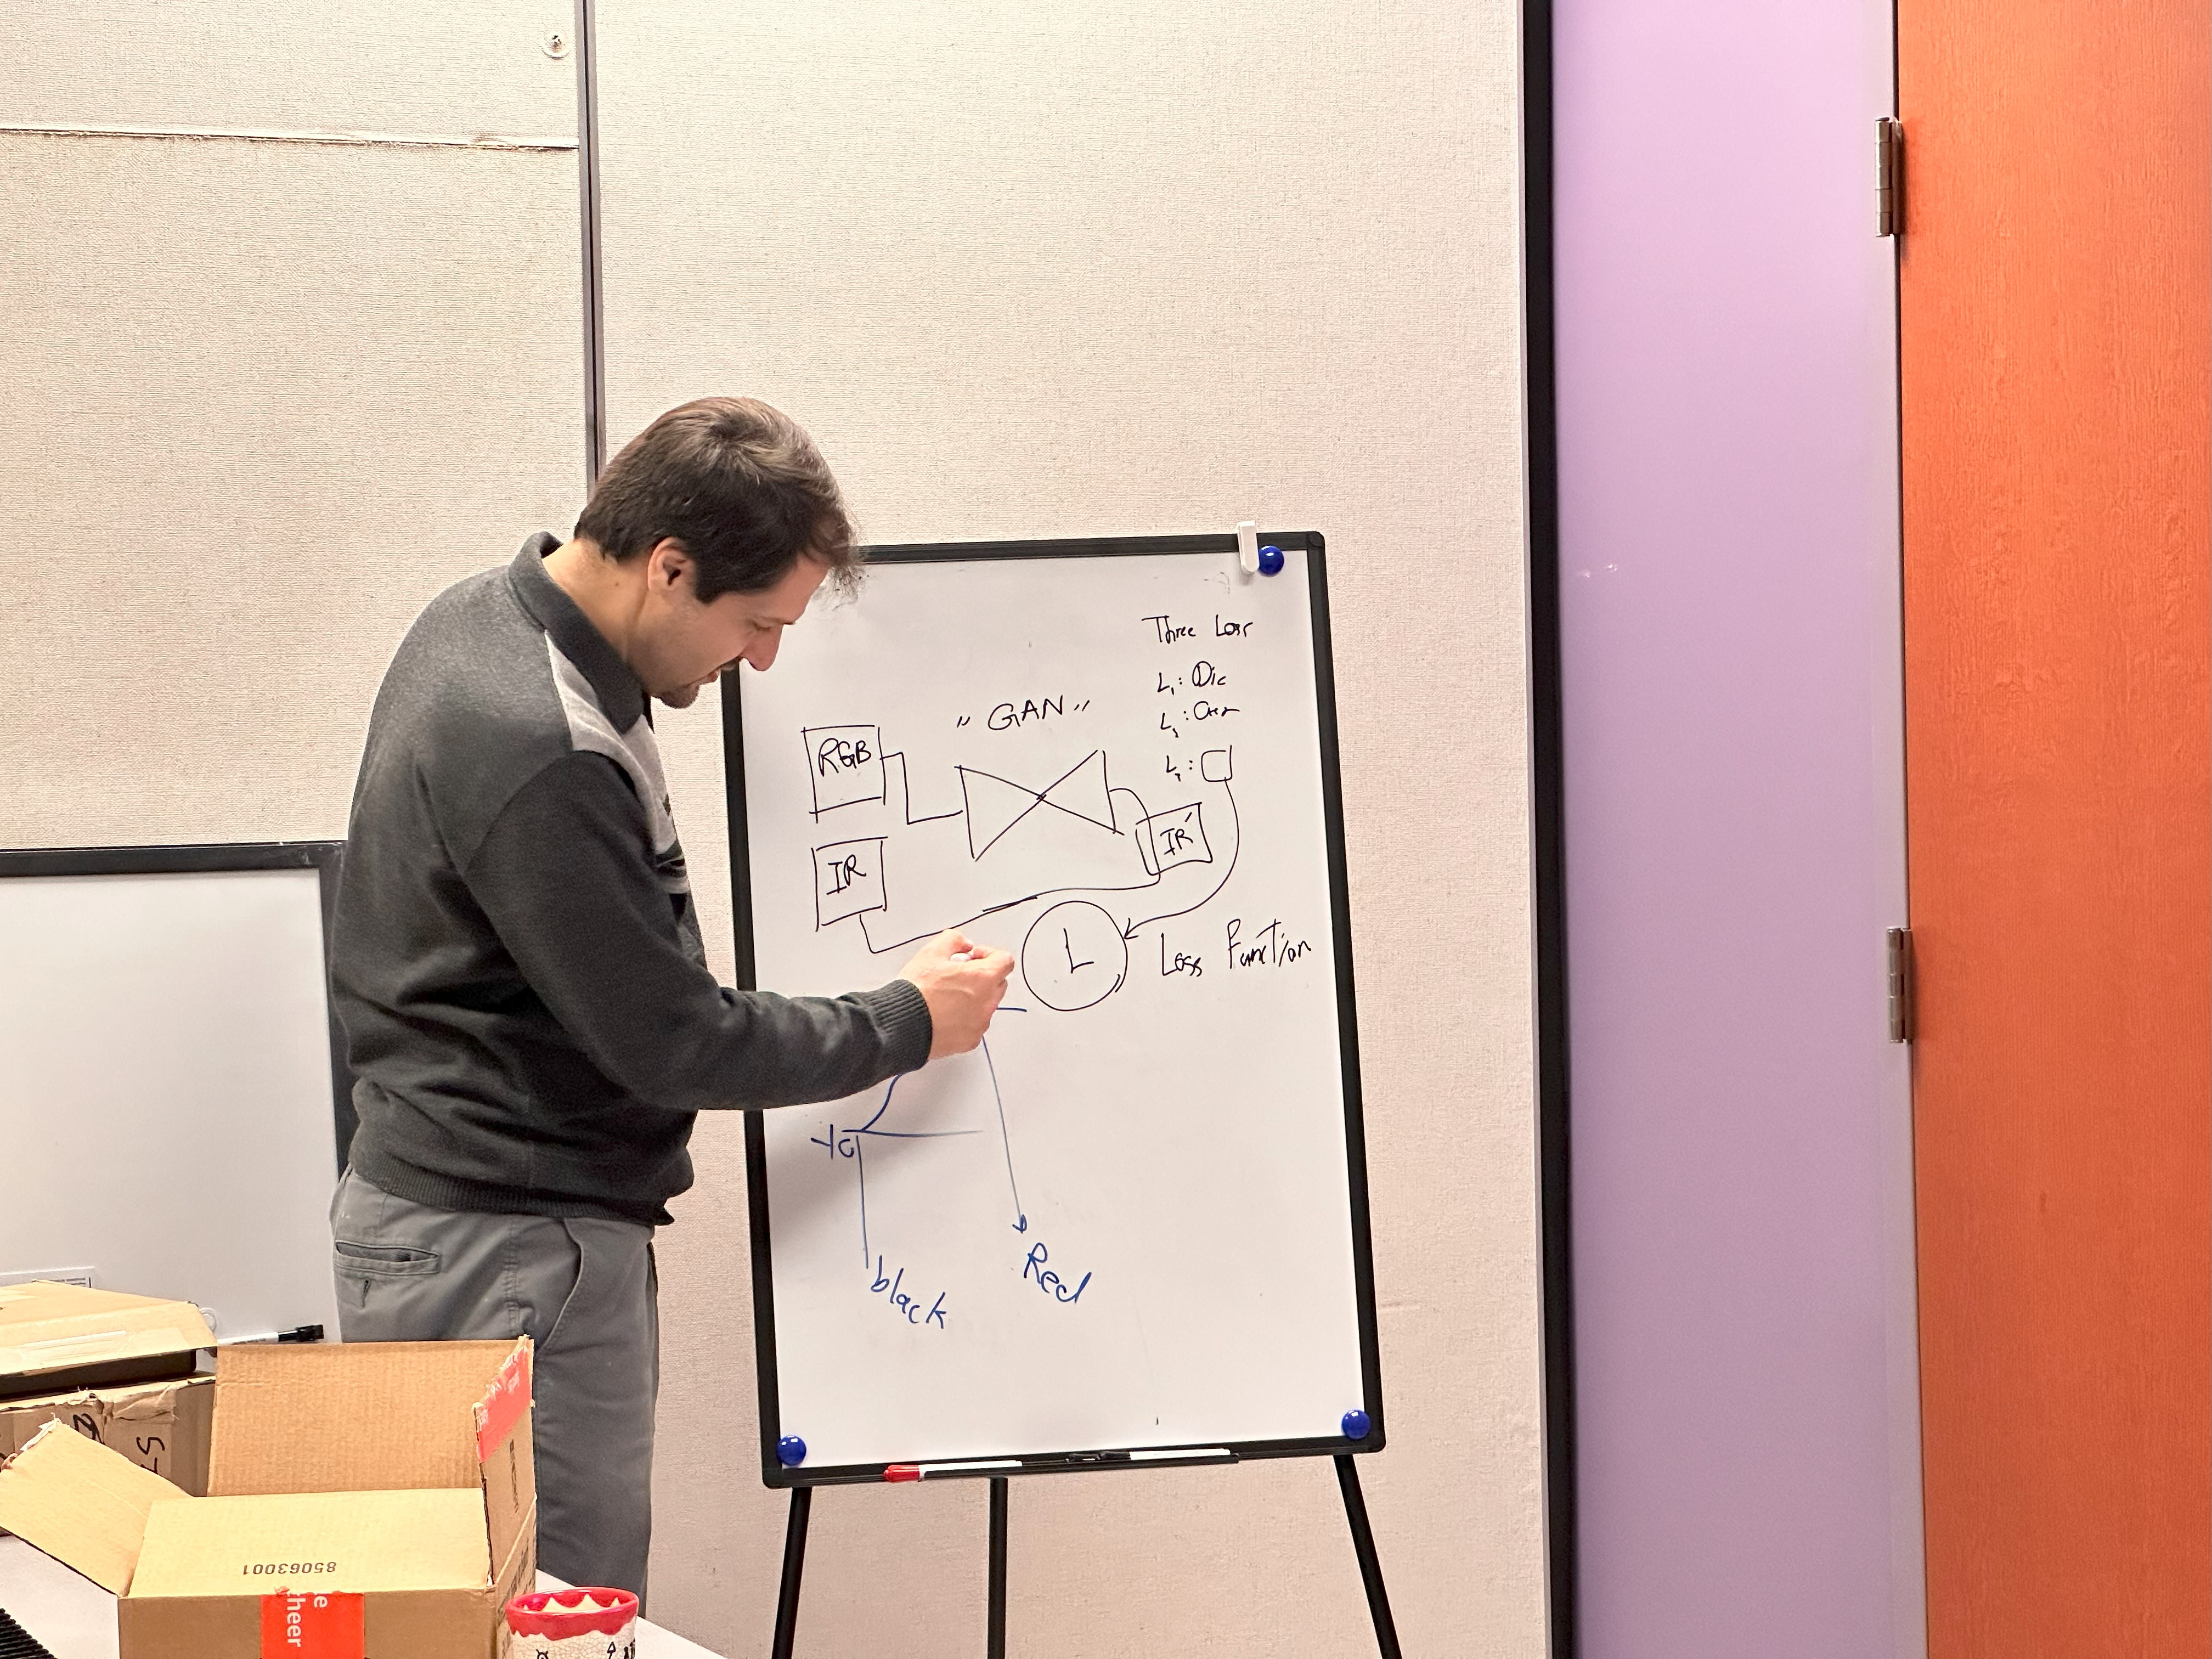 Three Loss
L₁: Dic
L₂: Gen
L₃:
"GAN"
RGB
IR
IR'
L
Loss Function
black
Red
85063001
heer